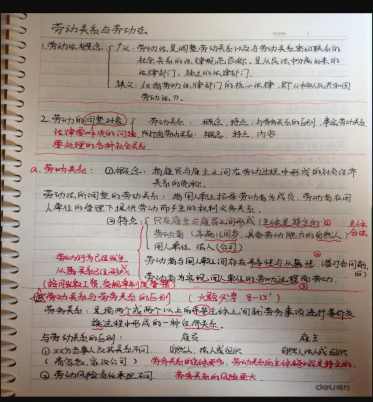 劳动关系与劳动法
1. 劳动法概念: 广义: 劳动法是调整劳动关系以及与劳动关系密切联系的
社会关系的法律规范总称,是从民法中分离出来的
法律部门,独立的法律部门。
狭义: 仅指劳动法律部门的核心法律,即《中华人民共和国
劳动法》。
2. 劳动的调整对象 劳动关系: 概念、特点、与劳务关系的区别、事实劳动关系
法律要解决的问题, 附随劳动关系: 概念、特点、内容
要处理的各种社会关系。
a. 劳动关系: ①概念: 指雇员与雇主之间在劳动过程中形成的社会经济
关系的统称。
劳动法所调整的劳动关系: 指用人单位招录劳动者为成员,劳动者在用
人单位的管理下提供劳动而产生的权利义务关系。
②特点: 只在雇主与雇员之间形成(主体是特定的) 主体
劳动者 (具备劳动能力的自然人) 合法
用人单位: 法人(公司)
劳动行为已经发生 劳动者与用人单位间存在与从属性 (签订合同前、
从属关系已经形成 后)
劳动者为实现用人单位的劳动过程而劳动。
劳动关系与劳务关系的区别 (大题必考 8-13')
劳务关系: 是指两个或两个以上的平等主体之间就劳务事项进行等价交
换过程中形成的一种经济关系。
与劳动关系的区别: 雇员 雇主
① 双方当事人及其关系不同 自然人、法人或组织 自然人、法人或组织
② 劳动风险责任承担不同 劳务关系的风险更大
deli得力